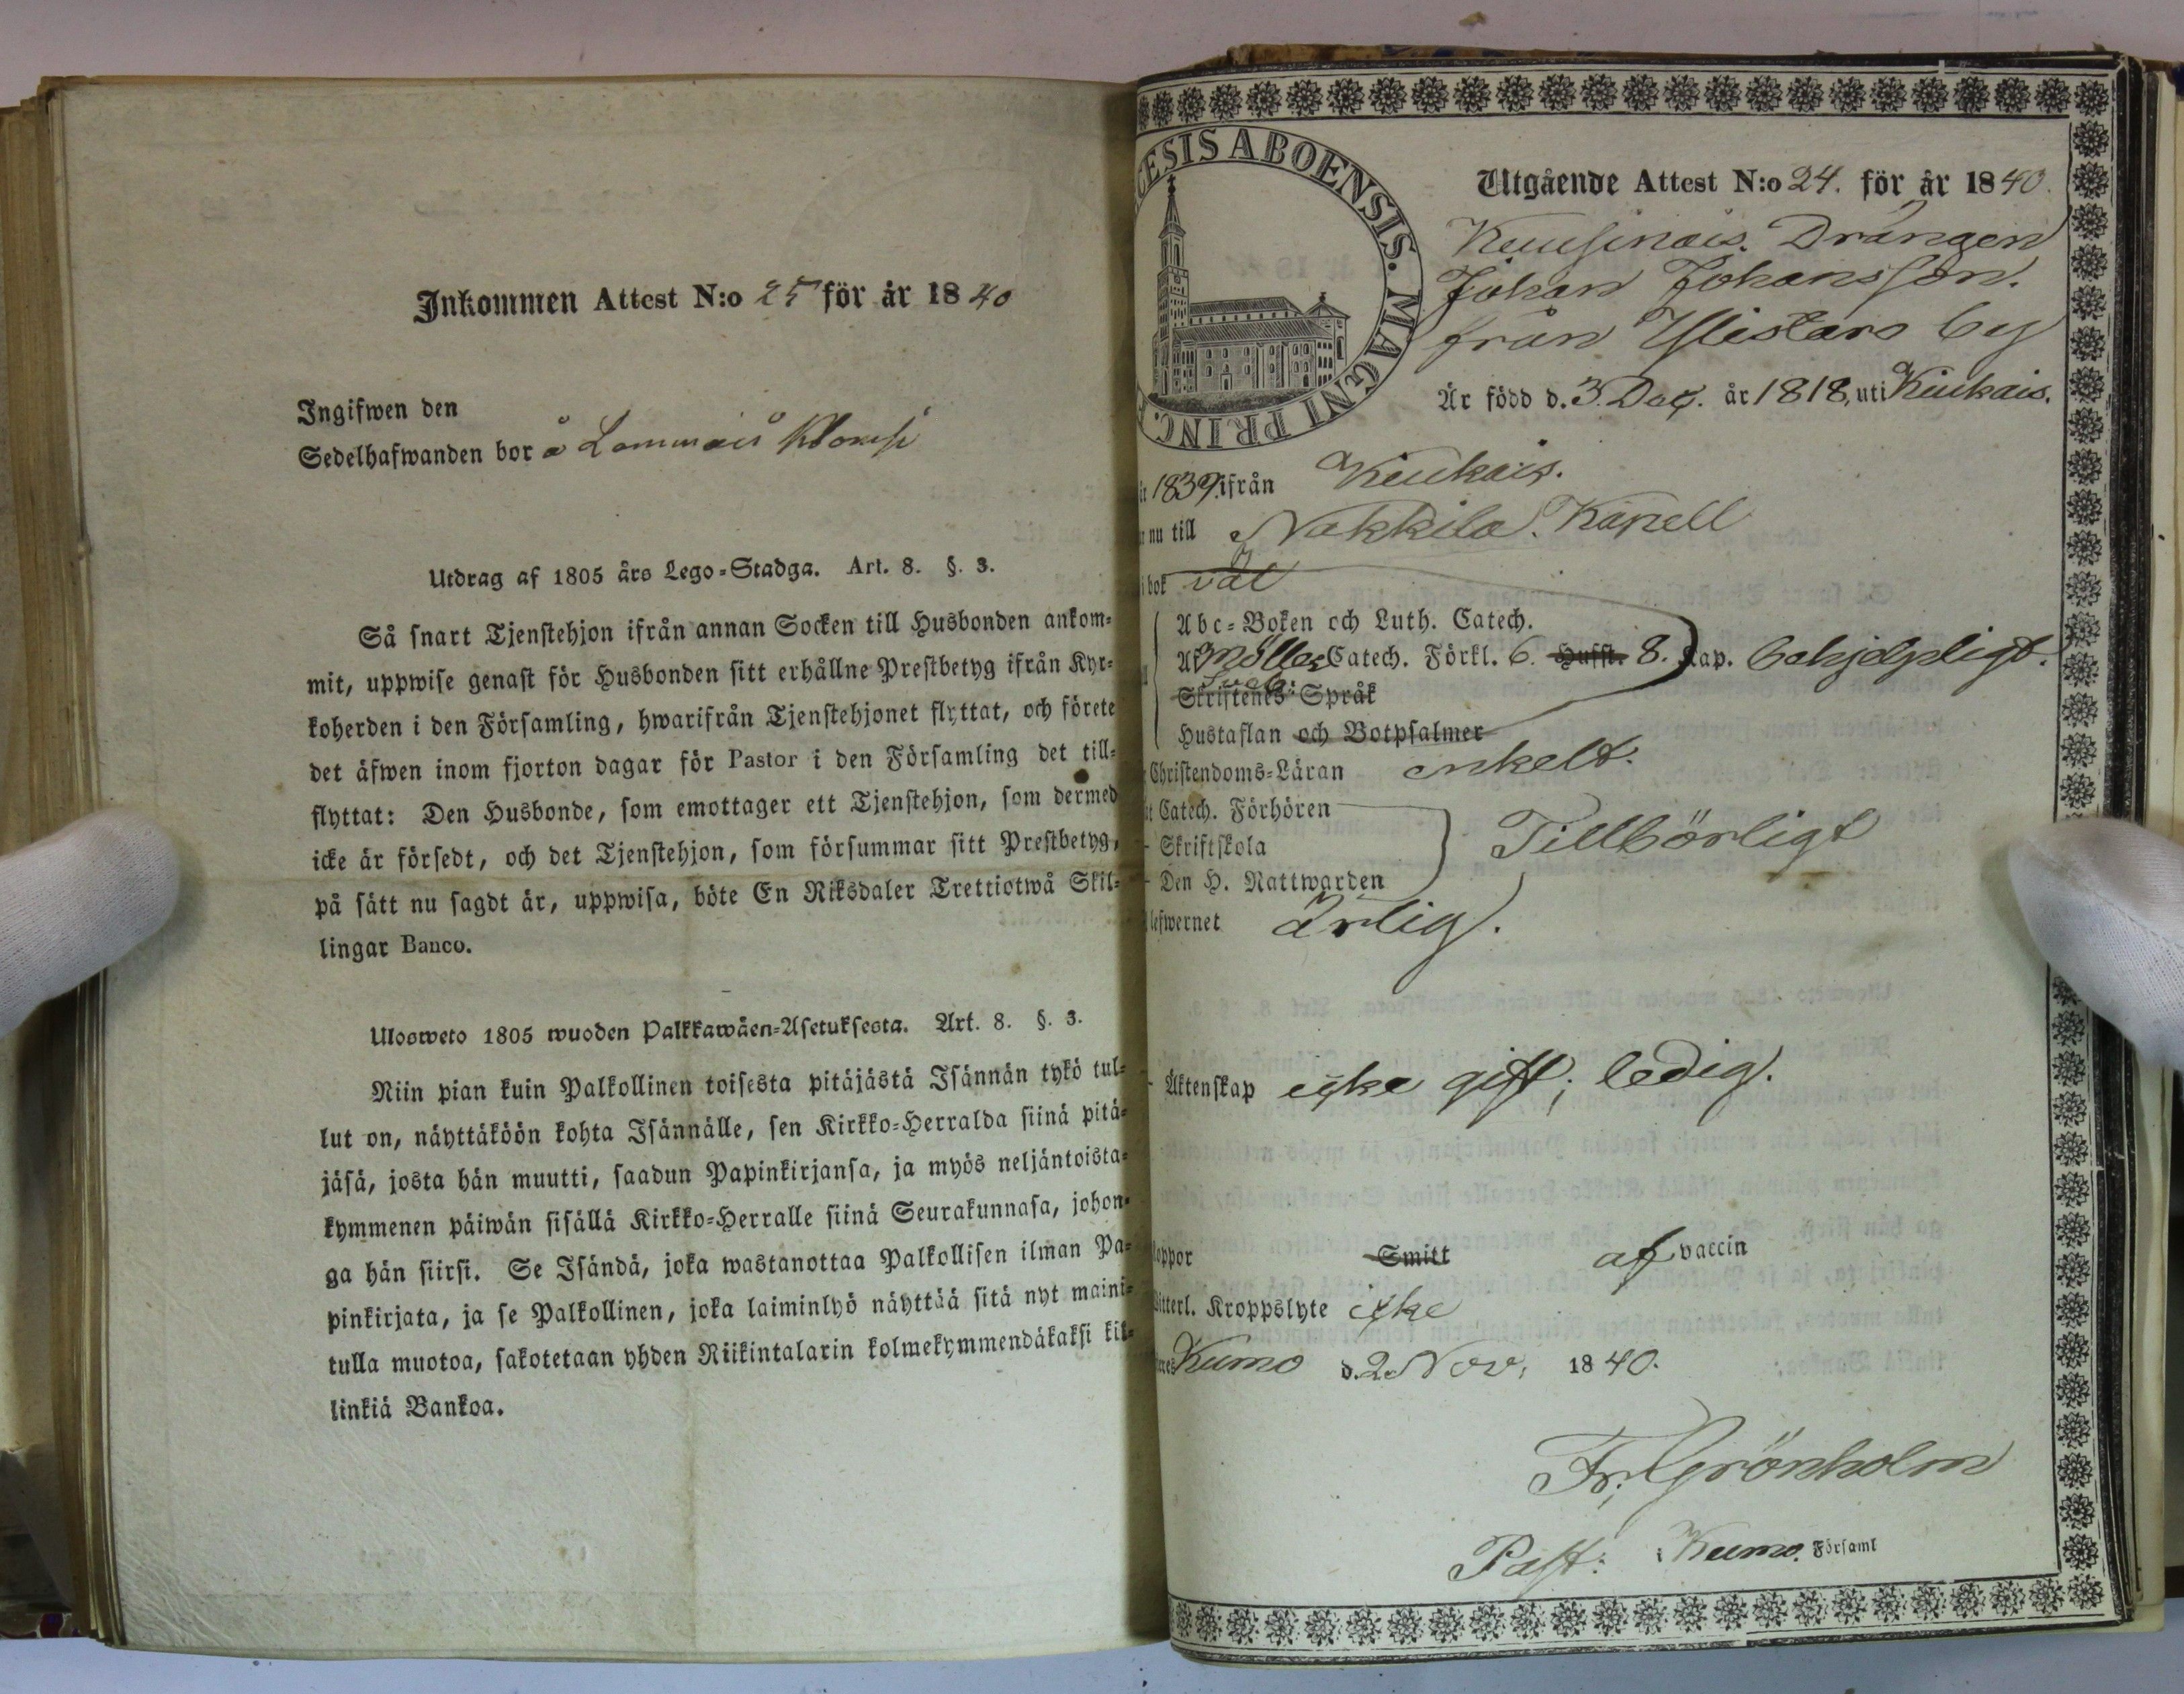 Inkommen Attest N:o 25 för år 1840
Ingifwen den
Sedelhafwanden bor å Lammais
Utdrag af 1805 års Lego-Stadga. Art. 8. §. 3.
Så snart Tjenstehjon ifrån annan Socken till Husbonden ankom-
mit, uppwise genast för Husbonden sitt erhållne Prestbetyg ifrån Kyr-
koherden i den Församling, hwarifrån Tjenstehjonet flyttat, och förete
det äfwen inom fjorton dagar för Pastor i den Församling det till-
flyttat: Den Husbonde, som emottager ett Tjenstehjon, som dermed
icke är försedt, och det Tjenstehjon, som försummar sitt Prestbetyg,
på sätt nu sagdt är, uppwisa, böte En Riksdaler Trettiotwå Skil-
lingar Banco.
Ulosweto 1805 wuoden Palkkawäen-Asetuksesta. Art. 8. §. 3.
Niin pian kuin Palkollinen toisesta pitäjästä Isännän tykö tul-
lut on, näyttäköön kohta Isännälle, sen Kirkko-Herralda siinä pitä-
jäsä, josta hän muutti, saadun Papinkirjansa, ja myös neljäntoista-
kymmenen päiwän sisällä Kirkko-Herralle siinä Seurakunnasa, johon-
ga hän siirsi. Se Isändä, joka wastanottaa Palkollisen ilman Pa-
pinkirjata, ja se Palkollinen, joka laiminlyö näyttää sitä nyt maini-
tulla muotoa, sakotetaan yhden Riikintalarin kolmekymmendäkaksi kil-
linkiä Bankoa.
CESIS ABOENSIS. MAGNI PRINC. F
Utgående Attest N:o 24. för år 1840.
Drängen
Johan Johansson.
från Ylistaro by
Är född d. 3 Dec. år 1818, uti Kiukais.
år 1839. ifrån Kiukais.
r nu till Nakkila Kapell
i bok väl
Abc-Boken och Luth. Catech.
Af Möllers Catech. Förkl. 6. Hufst. 8. Kap. behjelpligt.
Svab:
Skriftenes Språk
Hustaflan och Botpsalmer
Christendoms-Läran enkelt.
t Catech. Förhören
- Skriftskola Tillbörligt
- Den H. Nattwarden
lefwernet ärlig.
- Äktenskap icke gift; ledig.
koppor Smitt af vaccin
itterl. Kroppslyte icke
Kumo d. 2 Nov. 1840.
Fr. Grönholm
Past: i Kumo Församl